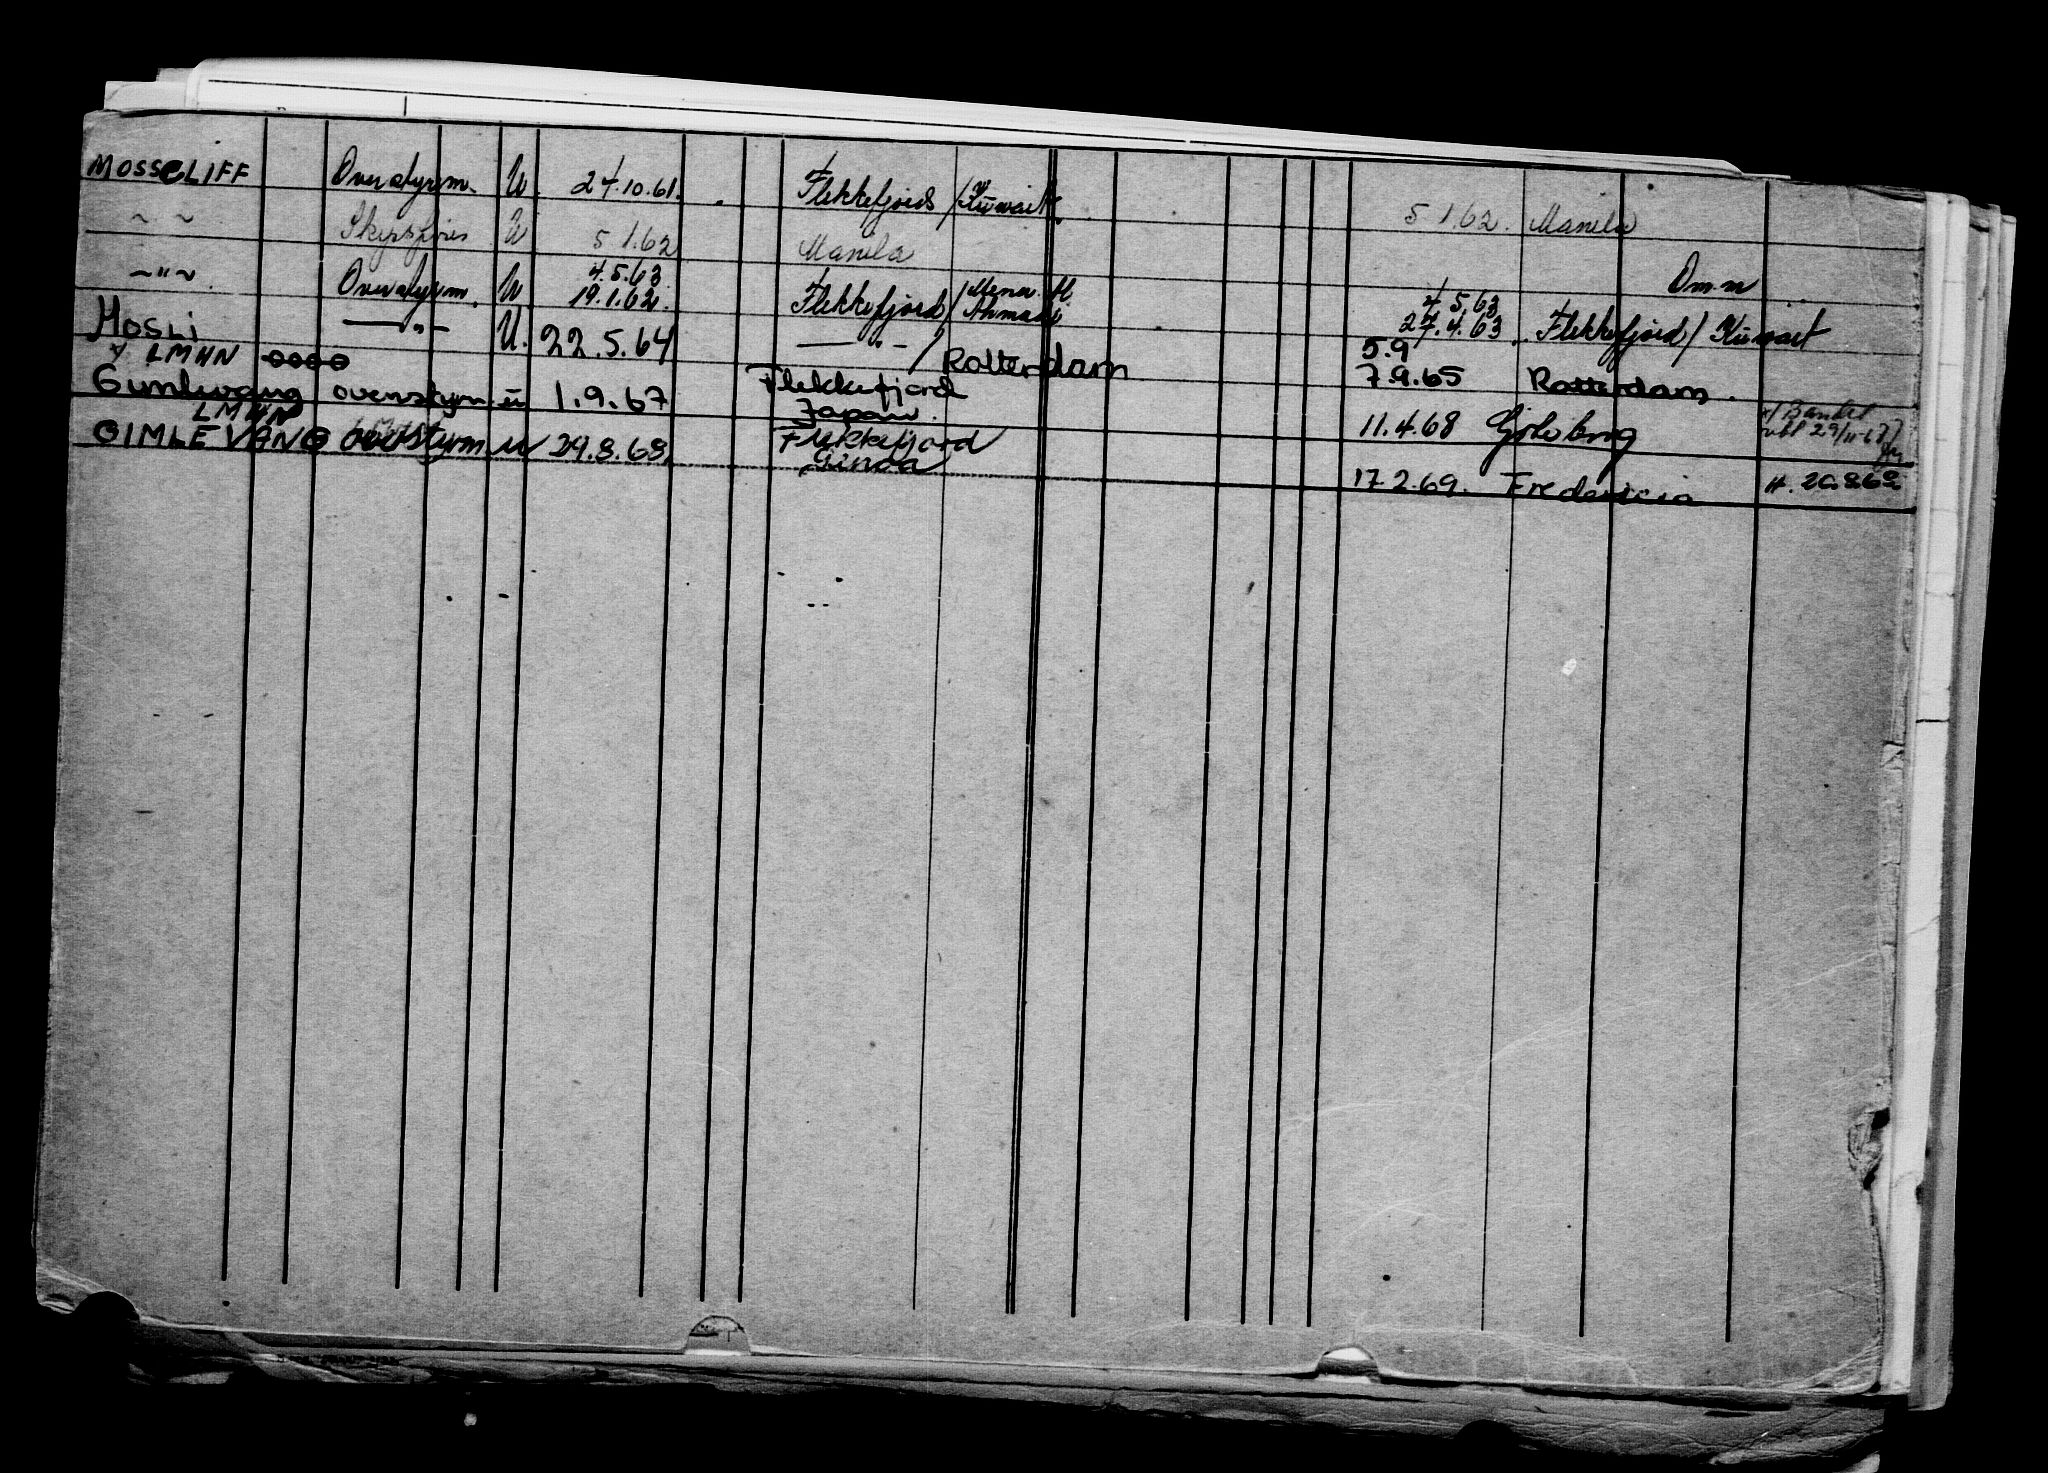 MOSSCLIFF Overstyrm. U. 24.10.61. Flekkefjord / Kuwait
~ ~ Skipsfører U 5 1.62 Manila 5 1.62. Manila
~"~ Overstyrm. U 4.5.63 19.1.62. Flekkefjord / Mena Al. Ahmadi 4.5.63 27.4.63 Flekkefjord / Kuwait Om.n
Mosli —"— U. 22.5.64 —"— / Rotterdam 5.9 7.9.65 Rotterdam.
LMHN
Gimlevang overstyrm u 1.9.67 Flekkefjord Japan. 11.4.68 Gøteborg
LMHN
GIMLEVANG overstyrm u 29.8.68, Flekkefjord Genoa 17.2.69. Fredericia